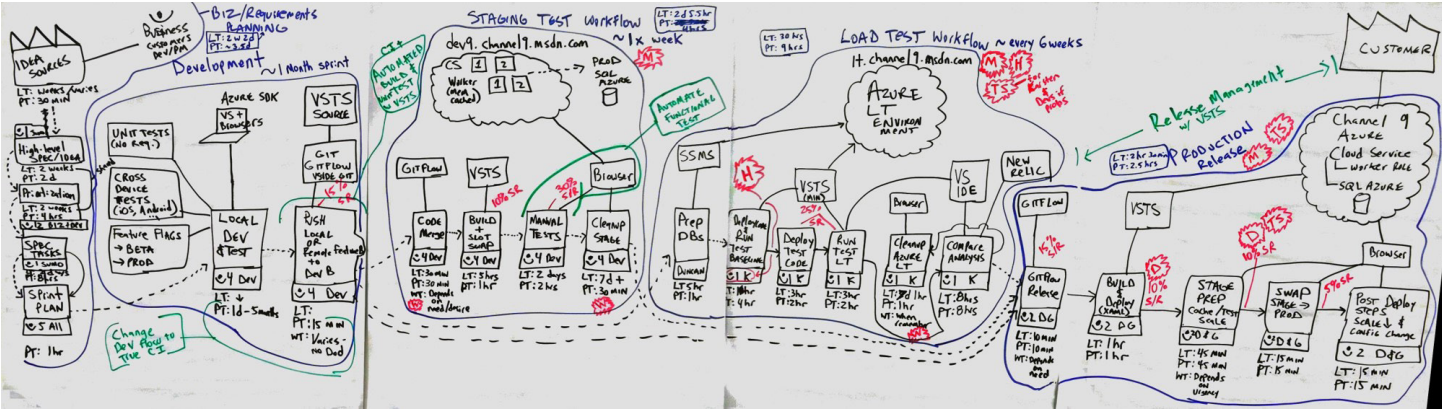 BIZ/Requirements
PLANNING
LT: 2w2d
PT: ~3.5d
Business
Customers
Dev/PM
IDEA
SOURCES
LT: Weeks/Varies
PT: 30 MIN
High-level
SPEC/IDEA
LT: 2 weeks
PT: 2d
Prioritization
LT: 2 weeks
PT: 4 hrs
SPEC
TASKS
Sprint
PLAN
5 All
PT: 1hr
Development
~1 Month sprint
UNIT TESTS
(No Req.)
CROSS
DEVICE
TESTS
(iOS, Android)
Feature Flags
→ BETA
→ PROD
AZURE SDK
VS+
Browsers
LOCAL
DEV
& TEST
4 Dev
LT: ↓
PT: 1d-5mths
VSTS
SOURCE
GIT
GITFLOW
VSIDE GIT
15%
S/R
PUSH
LOCAL
OR
Remote Feature B
to
Dev B
4 Dev
LT:
PT: 15 MIN
WT: Varies-
no Dod
Change
Dev flow to
True CI
CI+
AUTOMATED
BUILD &
UNIT TEST
~ VSTS
STAGING TEST Workflow
~1x week
LT: 2d 5.5hr
dev9.channel9.msdn.com
M
CS 1 2
Worker 1 2
(mem
cached)
PROD
SQL
AZURE
AUTOMATE
FUNCTIONAL
TEST
GITFLOW
Code
Merge
4 Dev
LT: 30 MIN
PT: 30 MIN
WT: Depends
on
need/desire
W
VSTS
10% S/R
BUILD
+
SLOT
SWAP
4 Dev
LT: 5hrs
PT: 1hr
30%
S/R
MANUAL
TESTS
4 Dev
LT: 2 days
PT: 2hrs
Browser
Cleanup
STAGE
4 Dev
LT: 7d+
PT: 30 min
W
LOAD TEST Workflow ~ every 6 weeks
LT: 30 hrs
PT: 9 hrs
lt.channel9.msdn.com
M H
TS
AZURE
LT
ENVIRON
MENT
SSMS
Prep
DBs
DUNCAN
LT: 5hr
PT: 1hr
H
Deploy Code
& RUN
TEST
BASELINE
1 K
LT: 10hr
PT: 4hr
VSTS
(MIN)
Deploy
Test
Code
1 K
LT: 3hr
PT: 2hr
25%
S/R
RUN
TEST
LT
1 K
LT: 3hr
PT: 2hr
Browser
Cleanup
AZURE
LT
1 K
PT: 1hr
WT: when
remember
W
VS
IDE
NEW
RELIC
Compare
ANALYSIS
1 K
LT: 8hrs
PT: 8hrs
Release Management
w/ VSTS
CUSTOMER
LT: 2hr 30min
PT: 2.5hrs
PRODUCTION
Release
M TS
Channel 9
AZURE
Cloud Service
Worker Role
SQL AZURE
GITFLOW
15%
S/R
GitFlow
Release
2 DG
LT: 10 min
PT: 10 min
WT: Depends
on need
VSTS
D
10%
S/R
BUILD
&
Deploy
(XAML)
2 DG
LT: 1hr
PT: 1hr
D TS
10%
S/R
STAGE
PREP
Cache/Test
SCALE
D&G
LT: 45 min
PT: 45 min
WT: Depends
on
urgency
5% S/R
SWAP
STAGE→
PROD
D&G
LT: 15 min
PT: 15 min
Browser
Post Deploy
STEPS
SCALE↓ &
Config Change
2 D&G
LT: 15 min
PT: 15 min